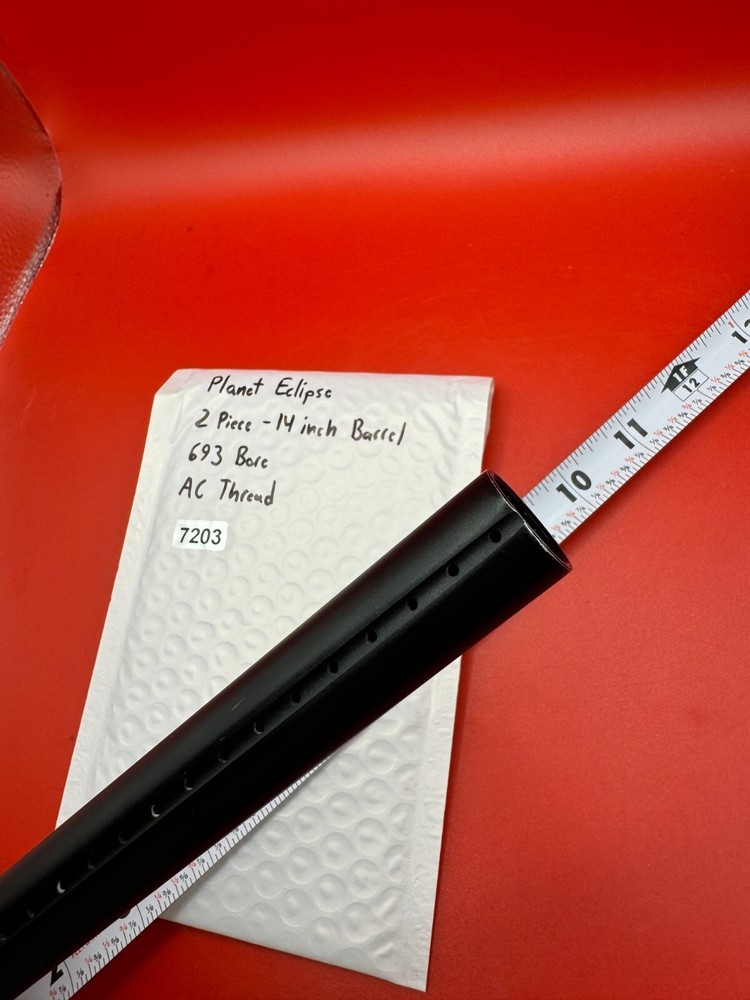 Planet Eclipse
2 Piece - 14 inch Barrel
693 Bore
AC Thread
7203
10
11
1F
12
2